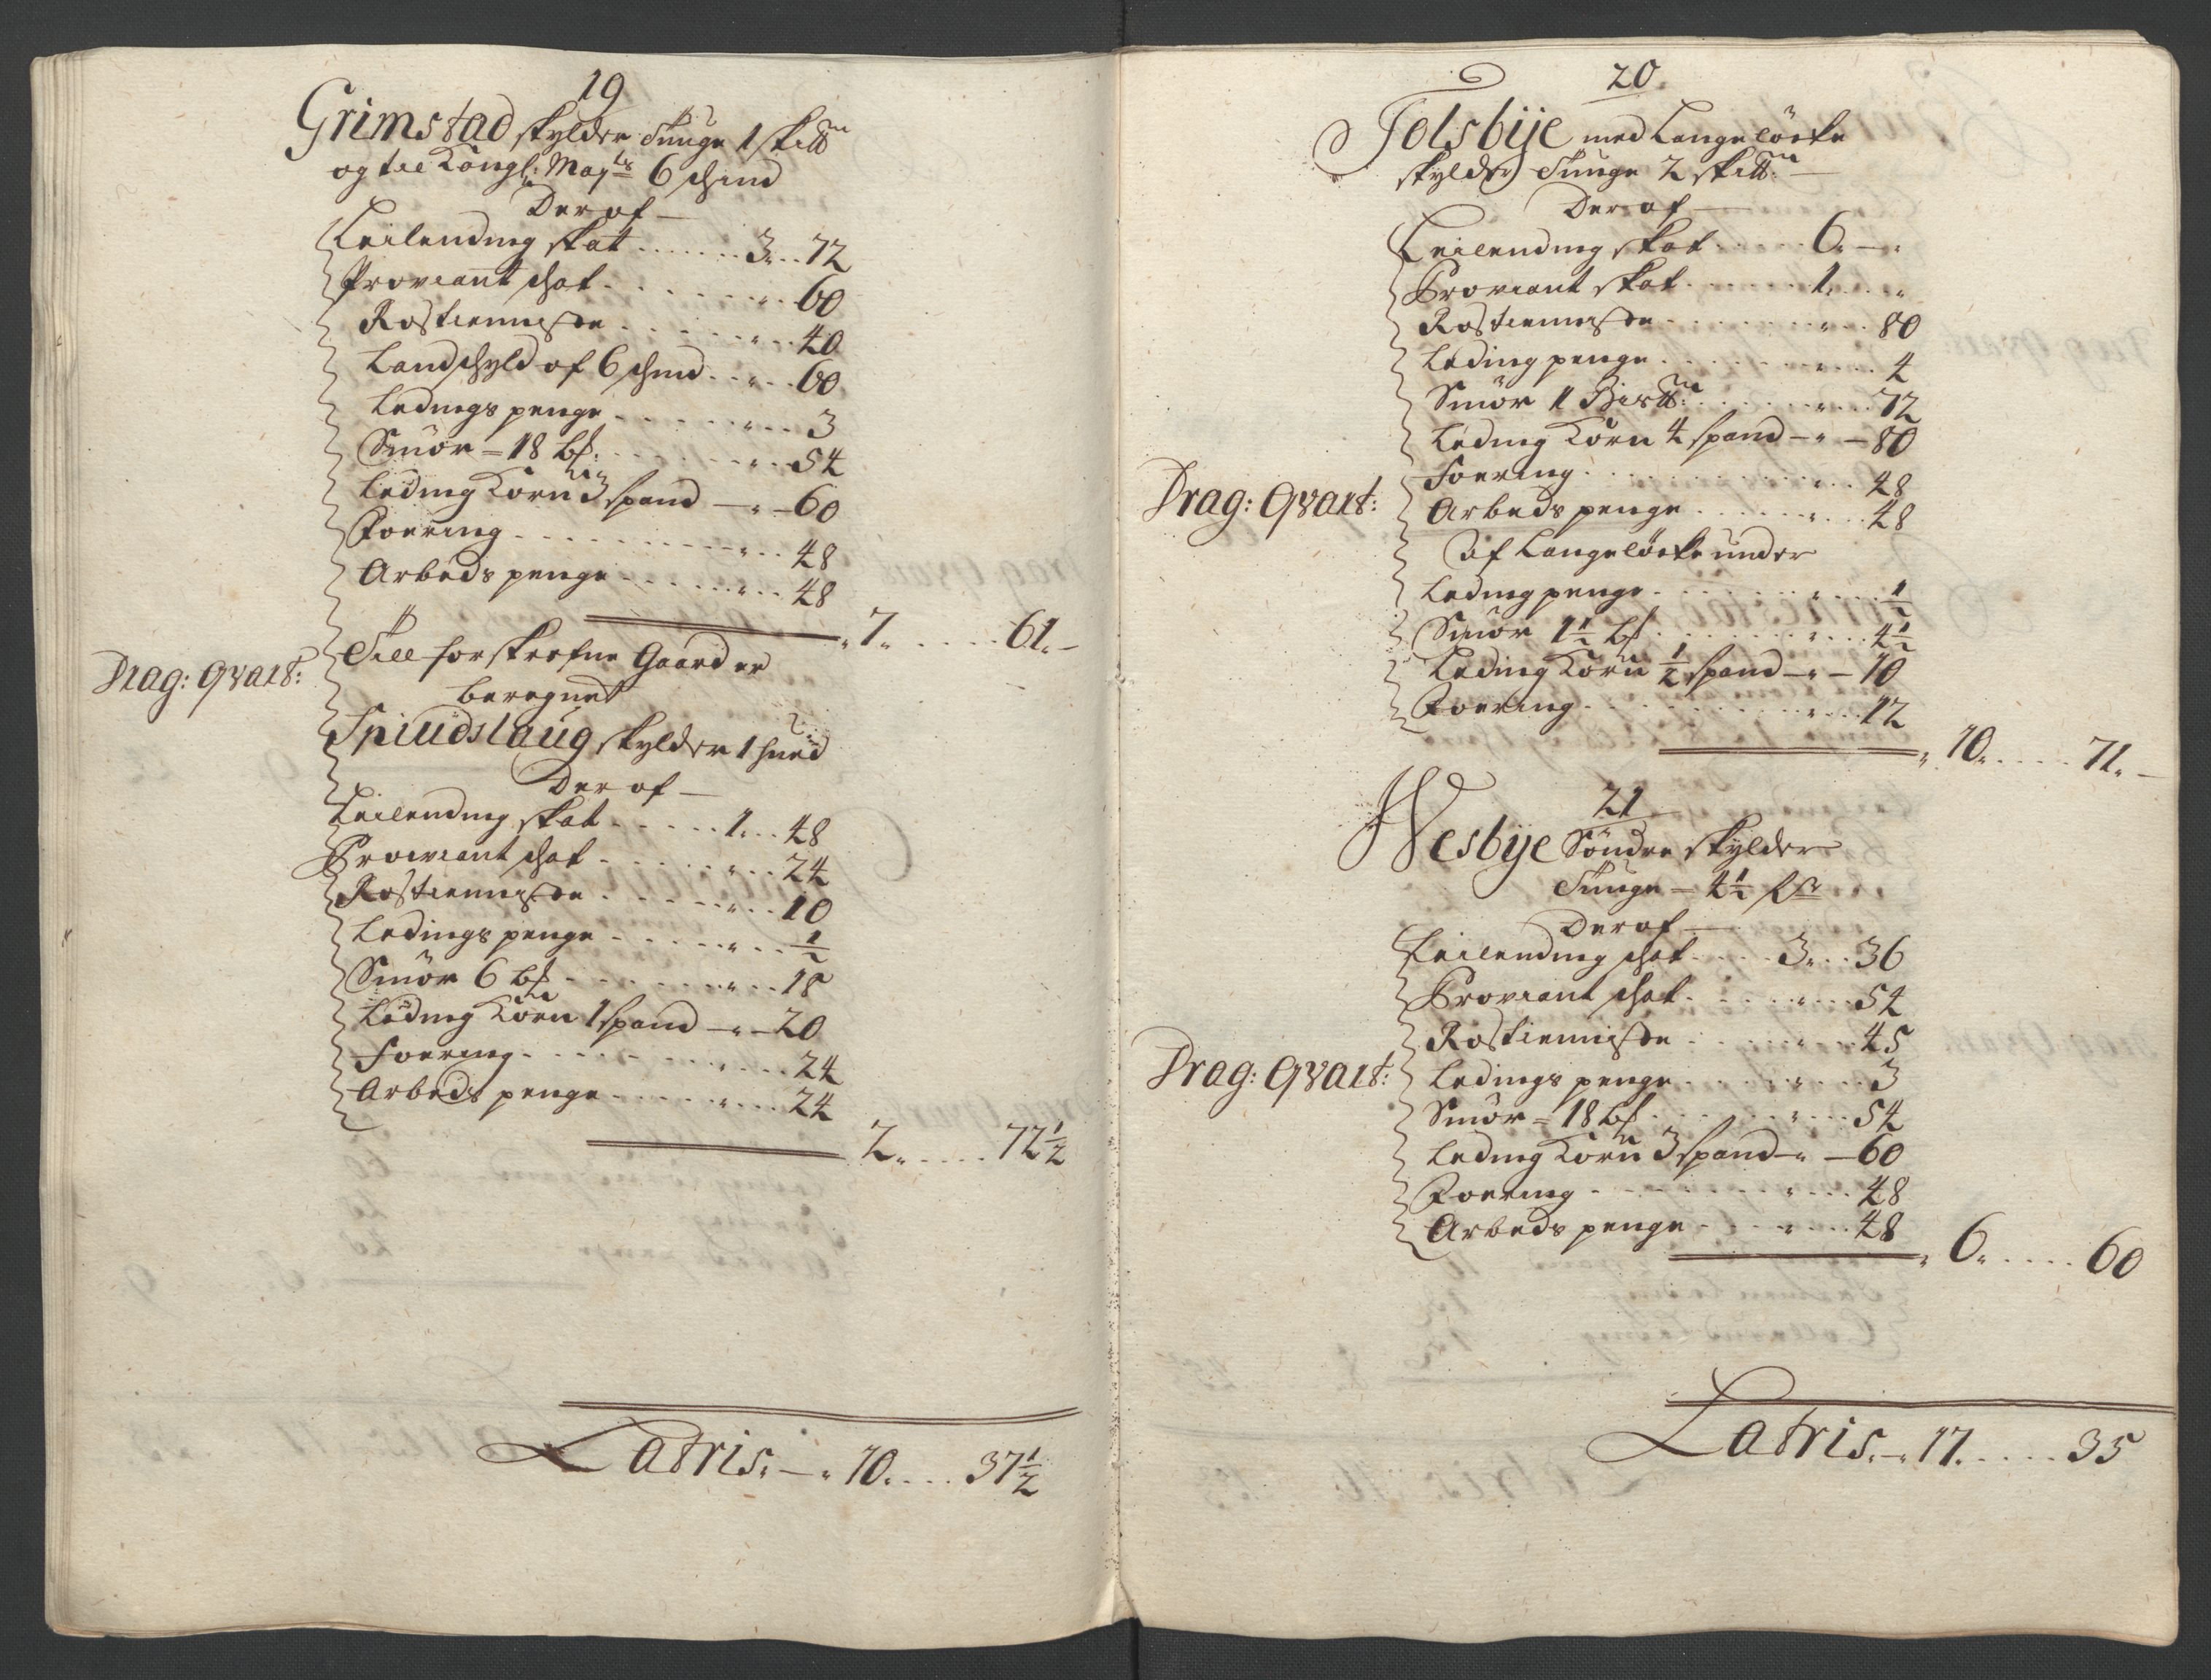 19
Grimstad skylder Tunge 1 skitt
og til Kongl: Mayts 6 schind
Der af
Leilending skat . . . . . . 3 . . 72
Proviant schat . . . . . . . „ . . 60
Rostienniste . . . . . . „ . . . 40
Landschyld af 6 schind . . „ . . 60
Ledings penge . . . . . . „ . . 3
Smör = 18 b . . . . . . „ . . 54
Leding Korn 3 spand — „ — 60
Foering . . . . . . . . . . „ . . 48
Arbeds penge . . . . . . „ . . 48
„ 7 „ . . . . . 61 „ —
Drag: Qvart:
Till forskrefne Gaard er
beregnet
Spiudslaug skylder 1 hued
Der af
Leilending skat . . . . . 1 . . 48
Proviant schat . . . . . . „ . . 24
Rostienniste . . . . . . „ . . 10
Ledings penge . . . . . „ . . 1/2
Smör 6 b . . . . . . . „ . . 18
Leding Korn 1 spand — „ — 20
Foering . . . . . . . . „ . . . 24
Arbeds penge . . . . . „ . . . 24
2 „ . . . . . 72 1/2
Latris. — „ 10 . . . . 37 1/2
20
Tolsbÿe med Langelöcke
skylder Tunge 2 skitt
Der af
Leilending skat . . . . . 6 „ — „
Proviant skat . . . . . . 1 . . . „
Rostienniste . . . . . . . . „ . . 80
Leding penge . . . . . . . „ . . . 4
Smör 1 Bistt: . . . . . . . „ . . . 72
Leding Korn 4 spand — „ — 80
Foering . . . . . . . . . . „ . . . 48
Drag: Qvart:
Arbeds penge . . . . . . „ . . . 48
Af Langelöcke under
Leding penge . . . . . . . „ . . . 1/2
Smör 1 1/2 b . . . . . . . „ . . . 4 1/2
Leding Korn 1/2 spand — „ — 10
Foering . . . . . . . . . . „ . . . 12
„ 10 „ . . . . . 71 „ —
21
Wesbÿe Söndre skylder
Tunge — 4 1/2
Der af
Leilending schat . . . . 3 „ . . 36
Proviant schat . . . . . . „ . . . 54
Rostienniste . . . . . . „ . . . 45
Drag: Qvart:
Ledings penge . . . . . „ . . . 3
Smör = 18 b . . . . . . „ . . . 54
Leding Korn 3 spand — „ — 60
Foering . . . . . . . . . „ . . . 48
Arbeds penge . . . . . „ . . . 48
„ 6 „ . . . . 60
Latris. — „ 17 . . . . . 35